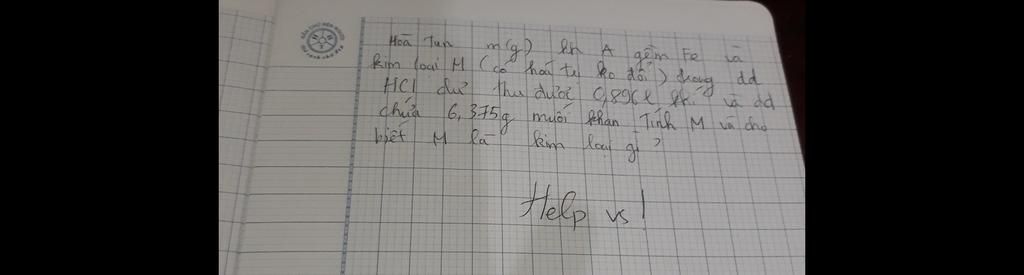 Hoà Tan m(g) hh A gồm Fe và
kim loại M (có hoá trị ko đổi) trong dd
HCl dư thu được 0,896l khí và dd
chứa 6,375g muối khan Tính M và cho
biết M là kim loại gì?
Help vs!